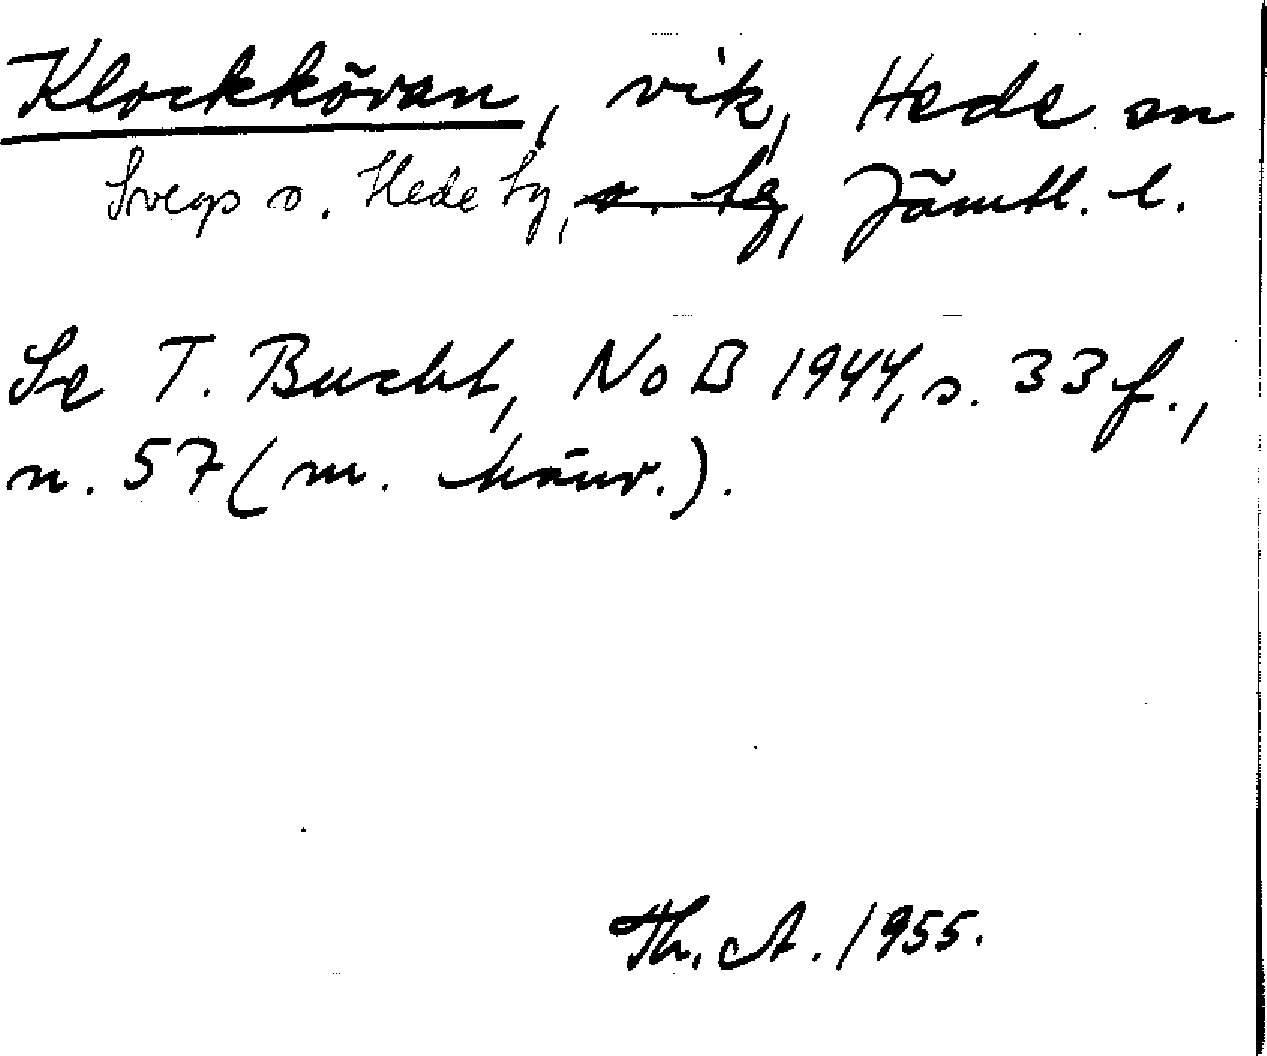 Klockkövan, vik, Hede sn
Svegs o. Hede tg, s. tg, Jämtl. l.
Se T. Bucht, NoB 1944, s. 33 f.,
n. 57 (m. hänv.).
Th. A. 1955.